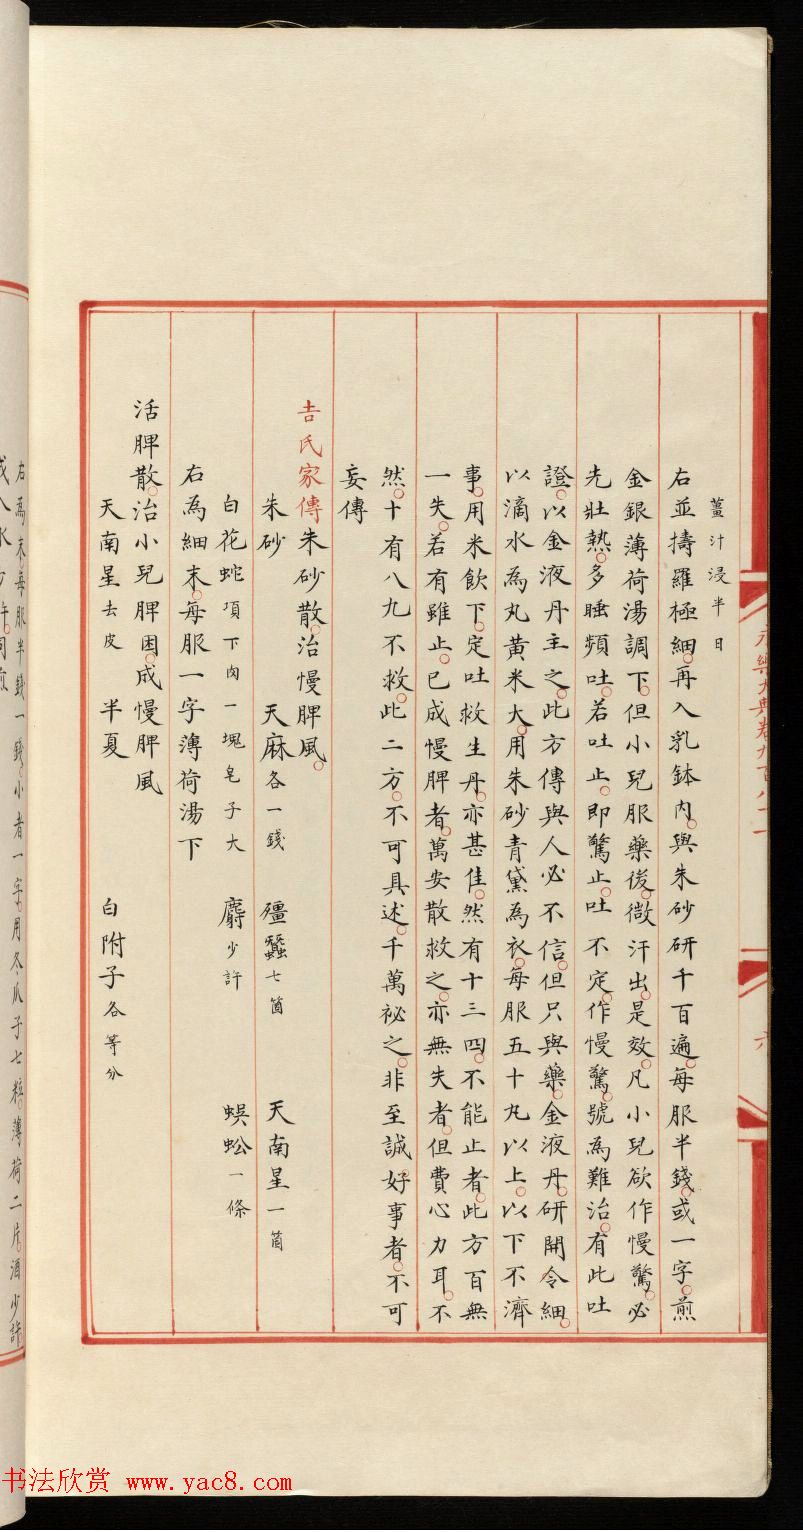 薑汁浸半日
右並擣羅極細。再入乳鉢内。與朱砂研千百遍。每服半錢。或一字。煎
金銀薄荷湯調下。但小兒服藥後。微汗出。是效。凡小兒欲作慢驚。必
先壯熱。多睡頻吐。若吐止。即驚止。吐不定。作慢驚。號為難治。有此吐
證。以金液丹主之。此方傳與人必不信。但只與藥。金液丹。研開令細。
以滴水為丸黄米大。用朱砂青黛為衣。每服五十丸以上。以下不濟
事。用米飲下。定吐救生丹。亦甚佳。然有十三四。不能止者。此方百無
一失。若有雖止。已成慢脾者。萬安散救之。亦無失者。但費心力耳。不
然。十有八九不救。此二方。不可具述。千萬祕之。非至誠。好事者。不可
妄傳
吉氏家傳朱砂散。治慢脾風。
朱砂 天麻各一錢 殭蠶七箇 天南星一箇
白花蛇項下肉一塊皂子大 麝少許 蜈蚣一條
右為細末。每服一字薄荷湯下
活脾散。治小兒脾困。成慢脾風
天南星去皮 半夏 白附子各等分
右為末。每服半錢一錢。小者一字。用冬瓜子七粒。薄荷二片。酒少許
永樂大典卷九百八十一
六
书法欣赏 www.yac8.com